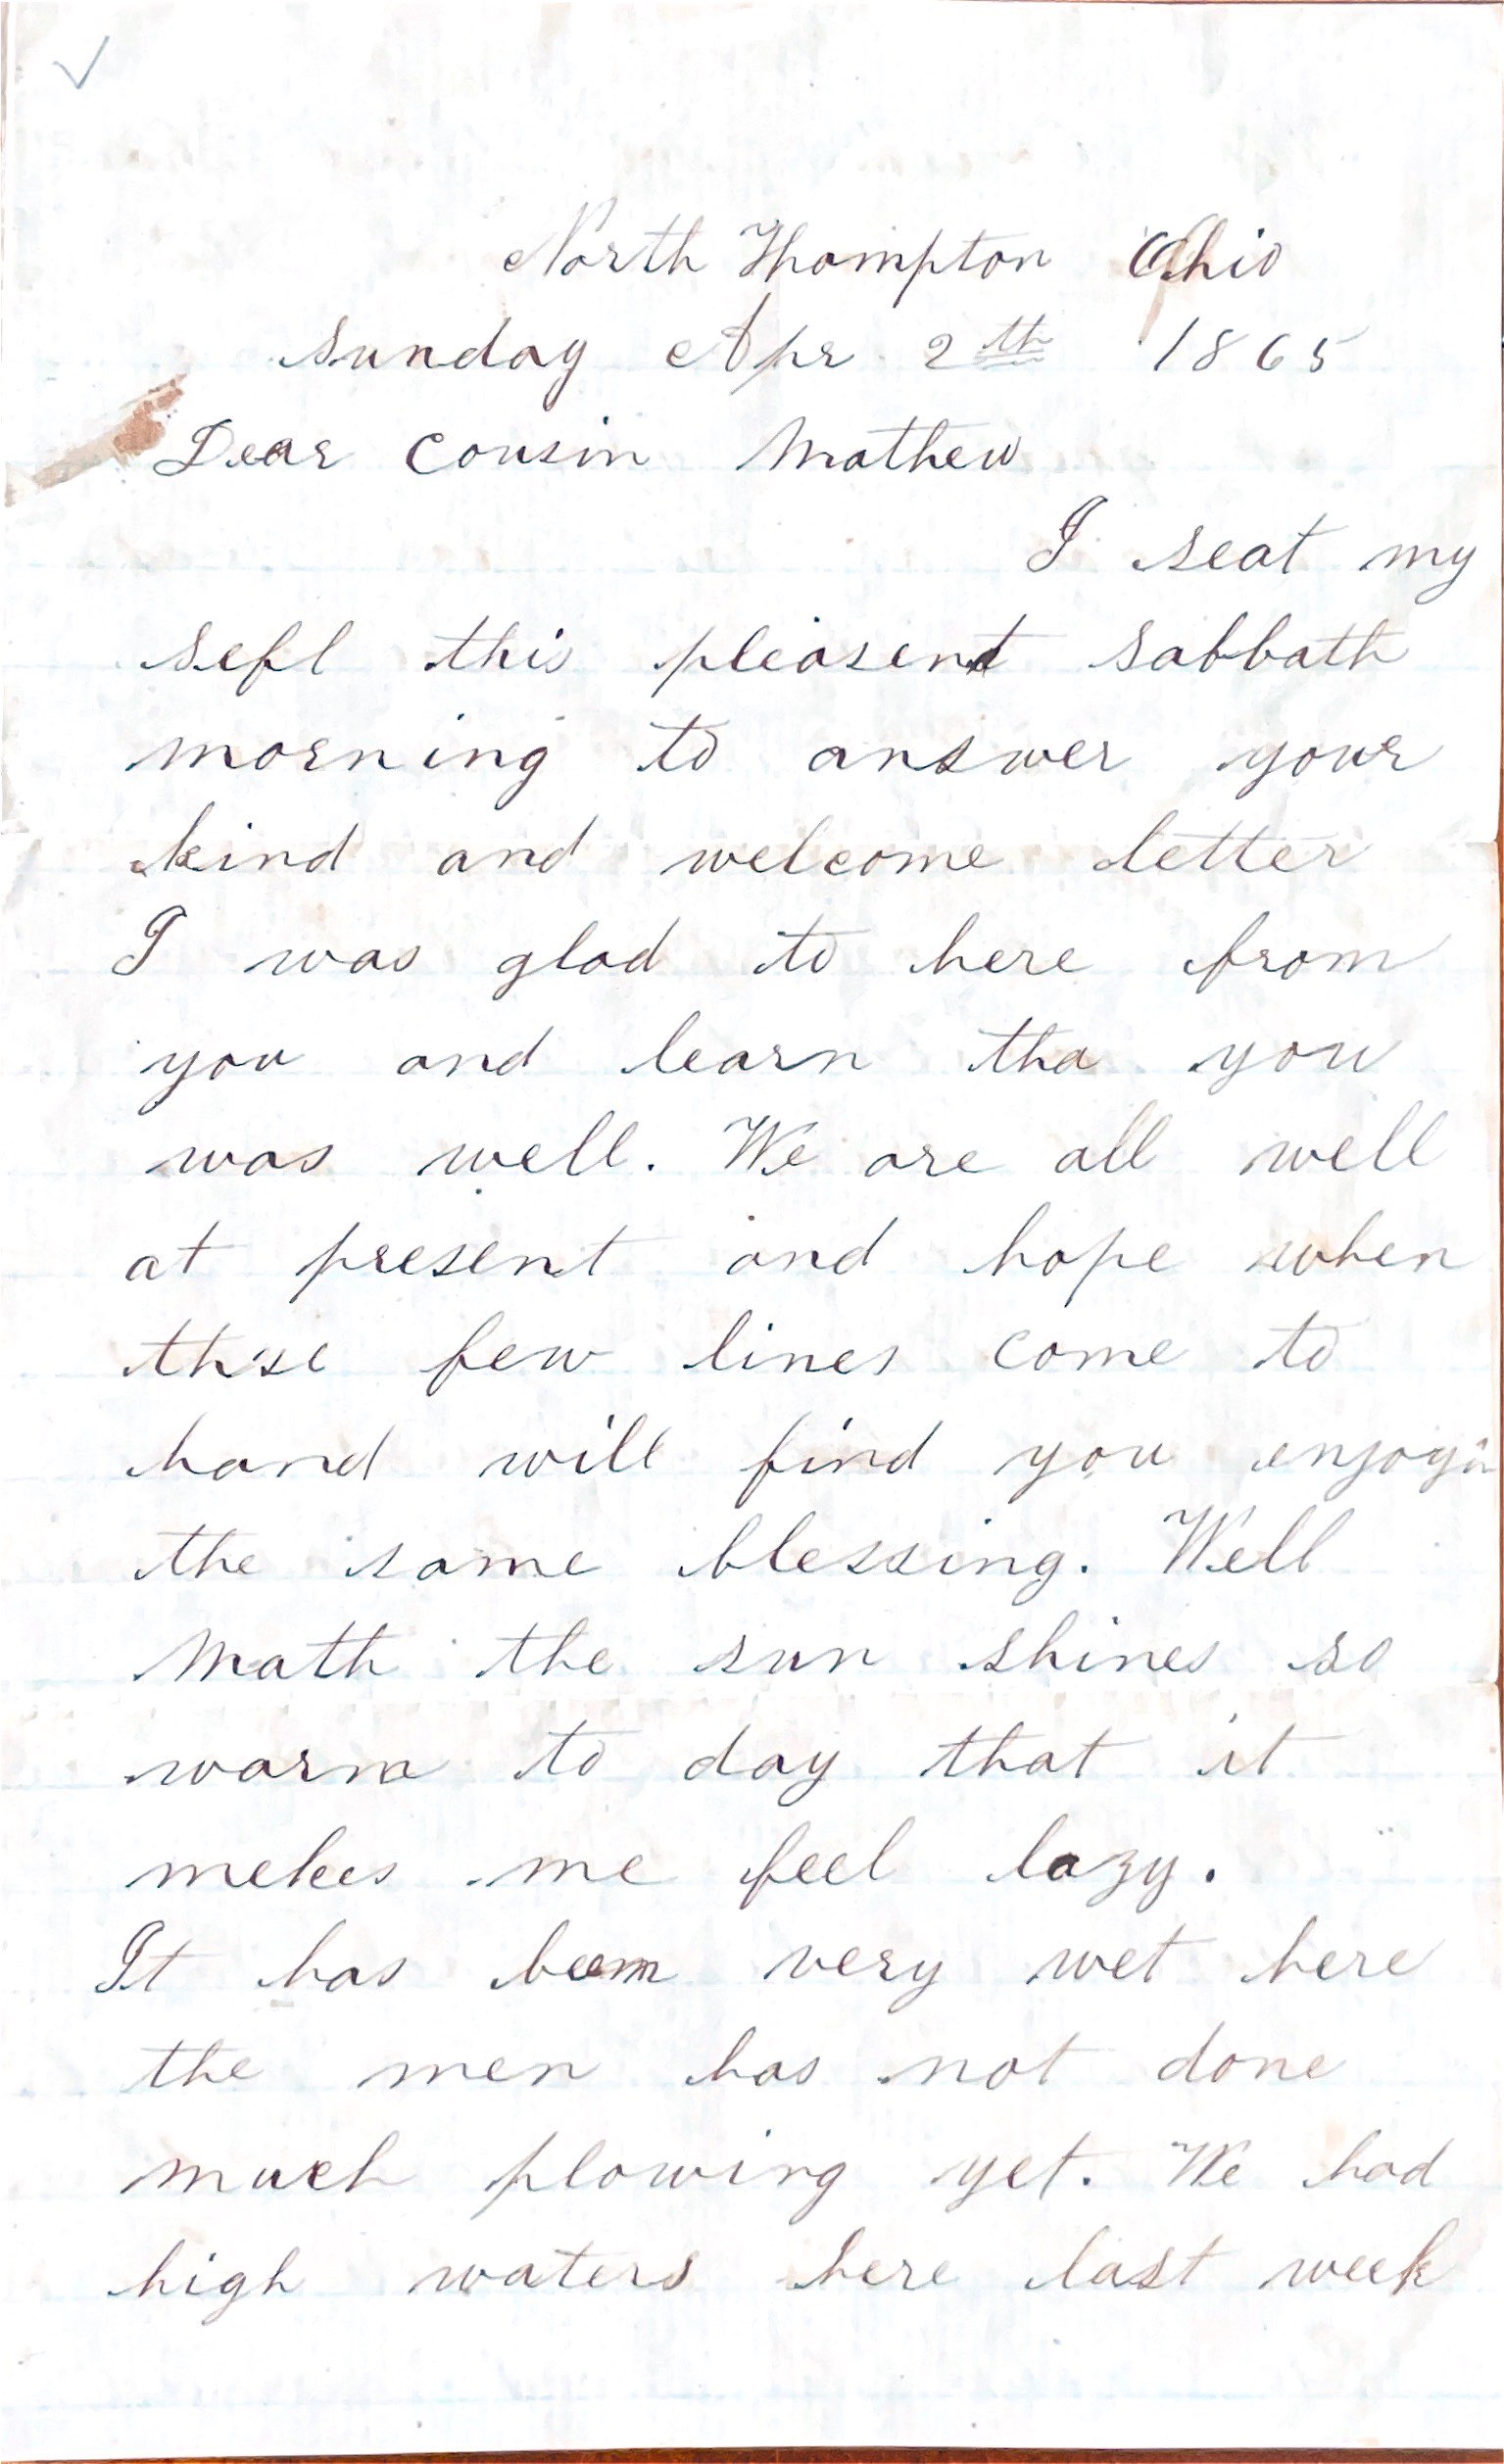 North Hampton Ohio
Sunday Apr 2th 1865
Dear Cousin Mathew
I seat my
sefl this pleasent sabbath
morning to answer your
kind and welcome letter
I was glad to here from
you and learn tha you
was well. We are all well
at present and hope when
these few lines come to
hand will find you enjoyin
the same blessing. Well
Math the sun shines so
warm to day that it
mekes me feel lazy.
It has beem very wet here
the men has not done
much plowing yet. We had
high waters here last week